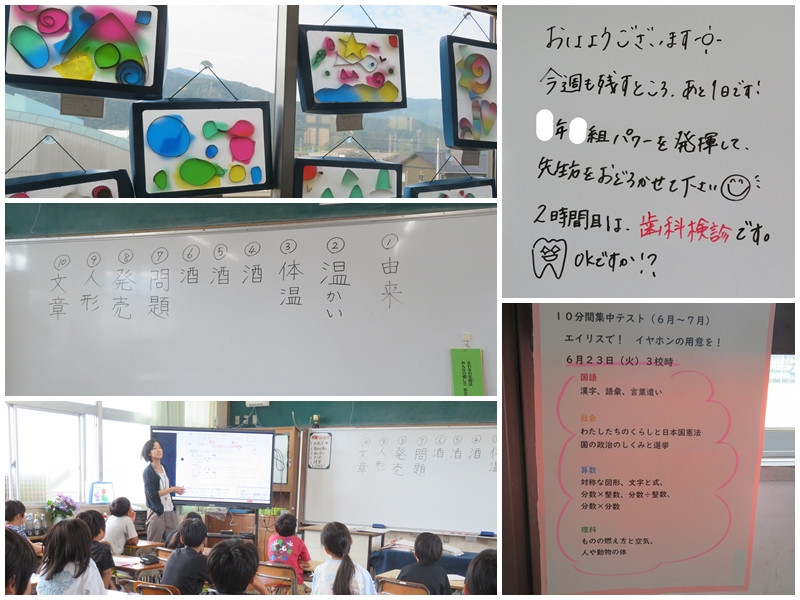 ①由来
②温かい
③体温
④酒
⑤酒
⑥酒
⑦問題
⑧発売
⑨人形
⑩文章
おはようございます
今週も残すところ、あと1日です!
年 組パワーを発揮して、
先生方をおどろかせて下さい
2時間目は、歯科検診です。
OKですか!?
10分間集中テスト(6月~7月)
エイリスで! イヤホンの用意を!
6月23日(火)3校時
国語
漢字、語彙、言葉遣い
社会
わたしたちのくらしと日本国憲法
国の政治のしくみと選挙
算数
対称な図形、文字と式、
分数×整数、分数÷整数、
分数×分数
理科
ものの燃え方と空気、
人や動物の体
⑩文章
⑨人形
⑧発売
⑦問題
⑥酒
⑤酒
④酒